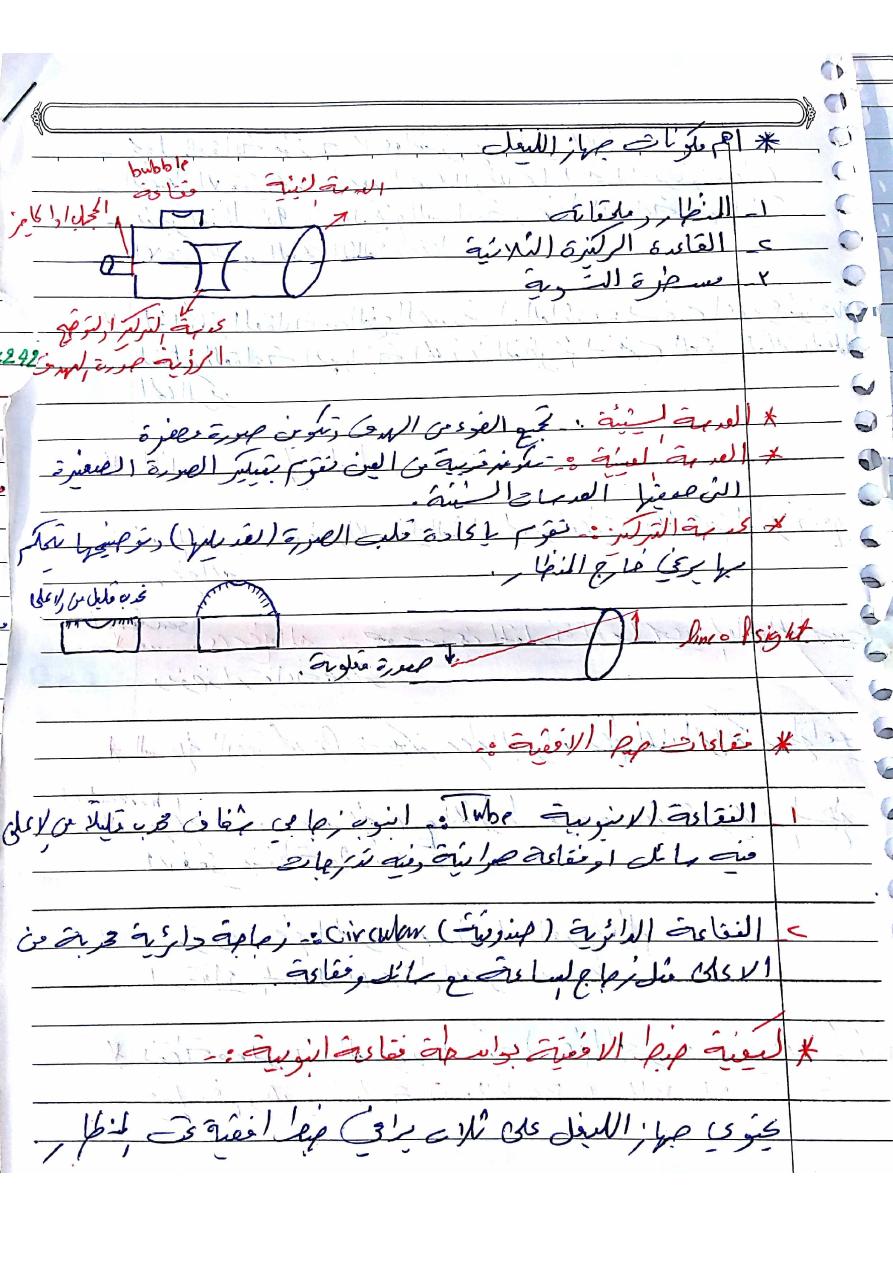 * اهم مكونات جهاز الليفل
bubble
فقاعة
العدسة الشيئية
١- المنظار وملحقاته
٢- القاعدة الركيزة الثلاثية
٣- مسطرة التسوية
عدسة التركيز والتوضيح
لرؤية صورة الهدف
* العدسة الشيئية :- تجمع الضوء من الهدف وتكون صورة مصغرة
* العدسة العينية :- تكون قريبة من العين تقوم بتكبير الصورة الصغيرة
التي صنعتها العدسات الشيئية.
* عدسة التركيز :- تقوم بإعادة قلب الصورة (تعديلها) وتوضيحها يتحكم
بها برغي خارج المنظار.
محدب قليل من الاعلى
line of sight
صورة مقلوبة.
* فقاعات ضبط الافقية :-
١- الفقاعة الانبوبية Tube :- انبوب زجاجي شفاف محدب قليلاً من الاعلى
فيه سائل او فقاعة هوائية وفيه تدريجات
٢- الفقاعة الدائرية (صندوقية) Circular :- زجاجة دائرية محدبة من
الاعلى مثل زجاج الساعة مع سائل وفقاعة.
* كيفية ضبط الافقية بواسطة فقاعة انبوبية :-
يحتوي جهاز الليفل على ثلاث براغي ضبط افقية تحت المنظار